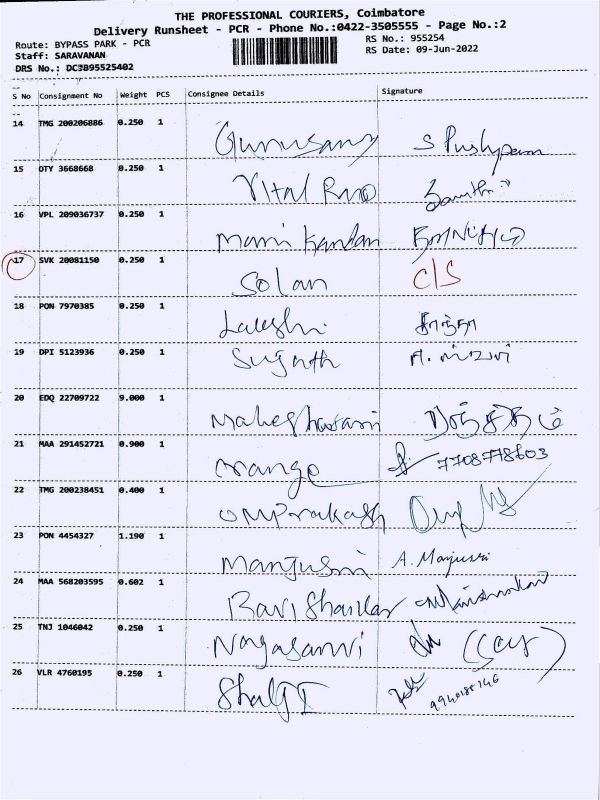 THE PROFESSIONAL COURIERS, Coimbatore
Delivery Runsheet - PCR - Phone No.:0422-3505555 - Page No.:2
Route: BYPASS PARK - PCR
RS No.: 955254
Staff: SARAVANAN
RS Date: 09-Jun-2022
DRS No.: DC3B95525402
S No Consignment No Weight PCS Consignee Details Signature
14 TMG 200206886 0.250 1 S Pushpam
15 OTY 3668668 0.250 1 Vital Rao
16 VPL 209036737 0.250 1 Mani Kandan
17 SVK 20081150 0.250 1 Solan C/S
18 PON 7970385 0.250 1
19 DPI 5123936 0.250 1 Sujath
20 EDQ 22709722 9.000 1
21 MAA 291452721 0.900 1 orange 7708778603
22 TMG 200238451 0.400 1 omprakash
23 PON 4454327 1.190 1 Manjusri A. Manjusri
24 MAA 568203595 0.602 1 Ravi Shankar
25 TNJ 1046042 0.250 1
26 VLR 4760195 0.250 1